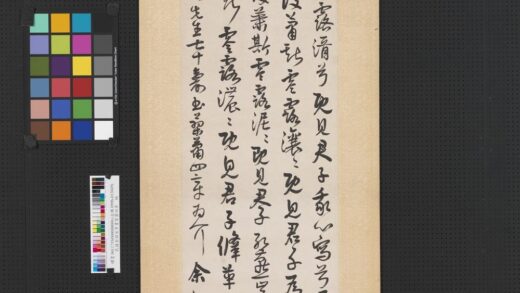 露湑兮既見君子我心寫兮
彼蕭斯零露瀼〻既見君子為
蕭斯零露泥〻既見君子孔燕豈
斯零露濃〻既見君子鞗革
先生七十壽書蓼蕭四章為介 余